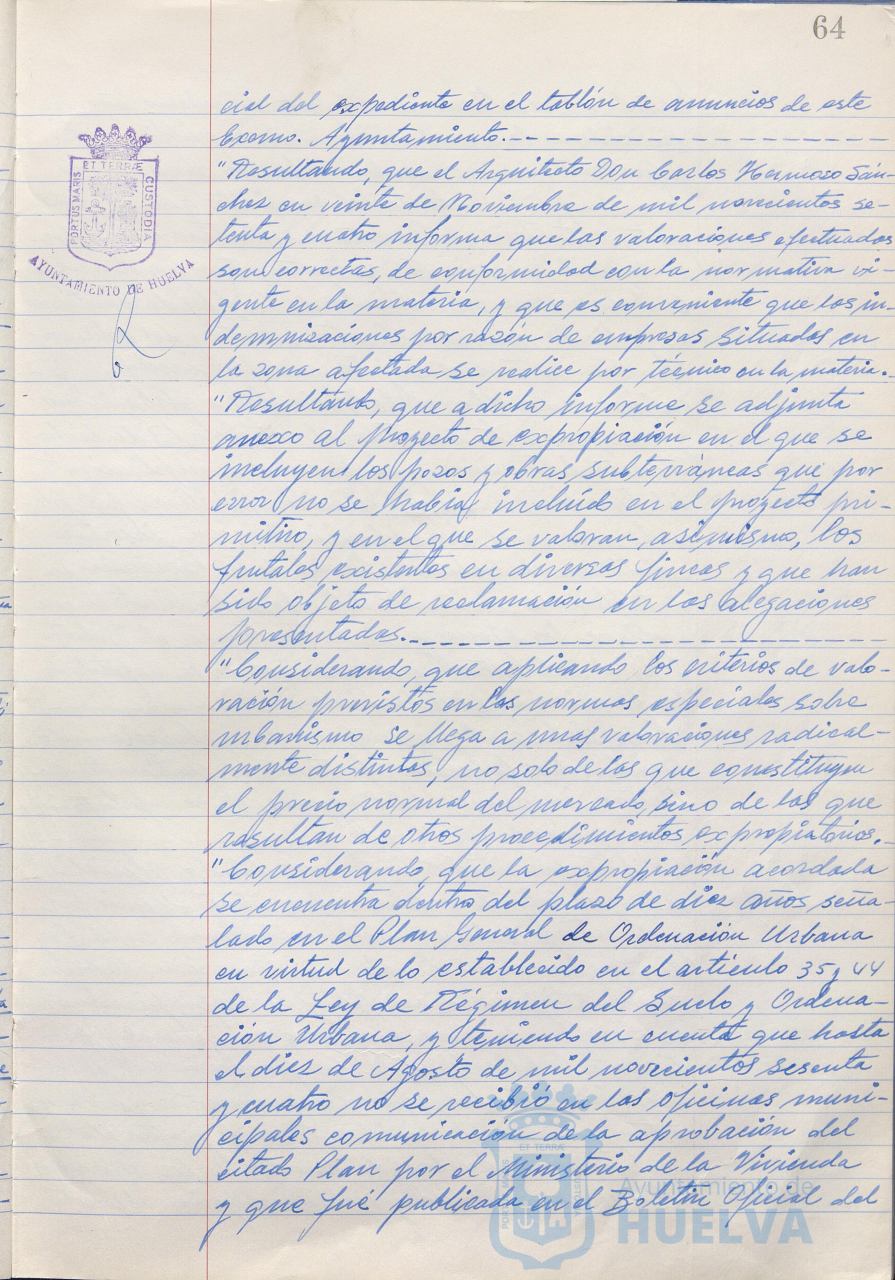 64
cial del expediente en el tablón de anuncios de este
Excmo. Ayuntamiento.
"Resultando, que el Arquitecto Don Carlos Hermoso Sán-
chez en veinte de Noviembre de mil novecientos se-
tenta y cuatro informa que las valoraciones efectuadas
son correctas, de conformidad con la normativa vi-
gente en la materia, y que es conveniente que las in-
demnizaciones por razón de empresas situadas en
la zona afectada se realice por técnico en la materia.-
"Resultando, que a dicho informe se adjunta
anexo al proyecto de expropiación en el que se
incluyen los pozos y obras subterráneas que por
error no se había incluído en el proyecto pri-
mitivo, y en el que se valoran, asimismo, los
frutales existentes en diversas fincas y que han
sido objeto de reclamación en las alegaciones
presentadas.
"Considerando, que aplicando los criterios de valo-
ración previstos en las normas especiales sobre
urbanismo se llega a unas valoraciones radical-
mente distintas, no solo de las que constituyen
el precio normal del mercado, sino de las que
resultan de otros procedimientos expropiatorios.-
"Considerando, que la expropiación acordada
se encuentra dentro del plazo de diez años seña-
lado en el Plan General de Ordenación Urbana
en virtud de lo establecido en el artículo 35 y 44
de la Ley de Régimen del Suelo y Ordena-
ción Urbana, y teniendo en cuenta que hasta
el diez de Agosto de mil novecientos sesenta
y cuatro no se recibió en las oficinas muni-
cipales comunicación de la aprobación del
citado Plan por el Ministerio de la Vivienda
y que fué publicada en el Boletín Oficial del
PORTUS MARIS
ET TERRÆ
CUSTODIA
AYUNTAMIENTO DE HUELVA
ET TERRÆ
Ayuntamiento de
HUELVA